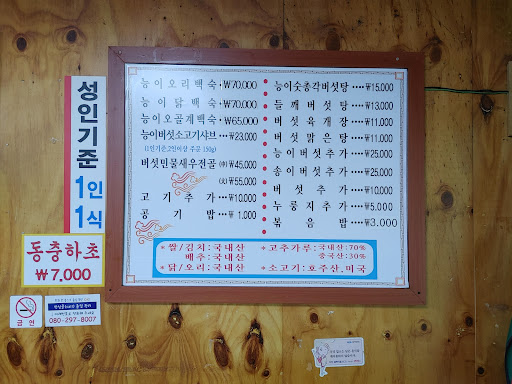 성인기준
1인
1식
동충하초
₩7,000
금연
080-297-8007
능이오리백숙·₩70,000
능이닭백숙·₩70,000
능이오골계백숙·₩65,000
능이버섯소고기샤브···₩23,000
(1인기준,2인이상 주문 150g)
버섯민물새우전골 (中)₩45,000
(大)₩55,000
고기추가···₩10,000
공기밥···₩ 1,000
능이숫총각버섯탕···₩15,000
들깨버섯탕···₩13,000
버섯육개장···₩11,000
버섯맑은탕···₩11,000
능이버섯추가···₩25,000
송이버섯추가···₩25,000
버섯추가···₩10,000
누룽지추가···₩5,000
볶음밥···₩3,000
*쌀/김치:국내산
배추:국내산
*닭/오리:국내산
*고추가루:국내산:70%
중국산:30%
*소고기:호주산,미국